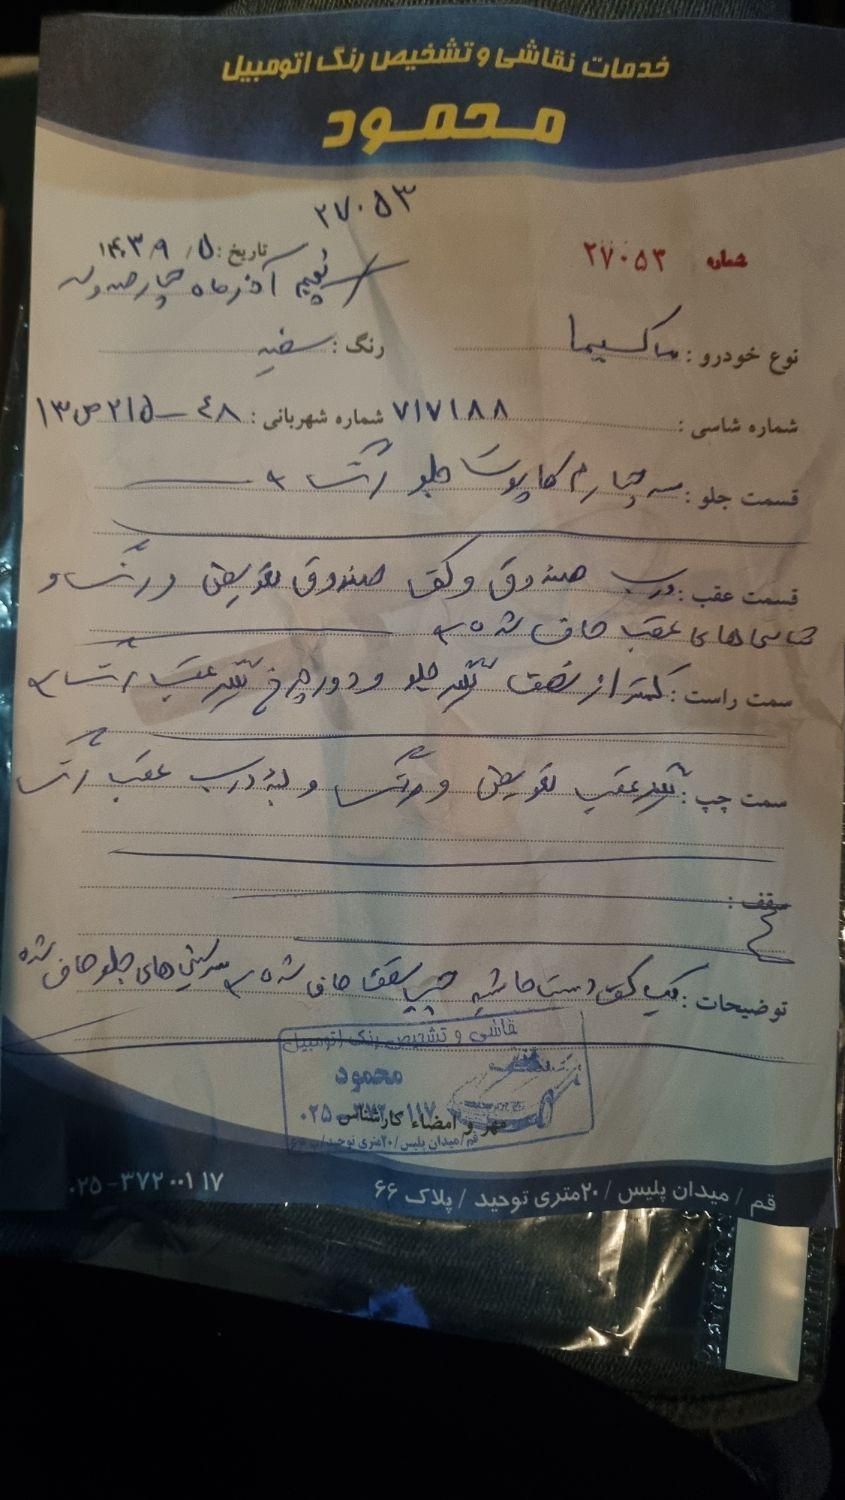 خدمات نقاشی و تشخیص رنگ اتومبیل
محمود
۲۷۰۵۳
شماره ۲۷۰۵۳
تاریخ : ۱۴۰۳/۹/۵
پنجم آذرماه چهارصد و سه
نوع خودرو : ماکسیما رنگ : سفید
شماره شاسی : ۷۱۷۱۸۸ شماره شهربانی : ۴۸ – ۲۱۵ ص ۱۳
قسمت جلو : سه چهارم کاپوت جلو رنگ است
قسمت عقب : درب صندوق و کف صندوق تعویض و رنگ و
شاسی های عقب صاف شده
سمت راست : کمتر از نصف گلگیر جلو و دور چرخ گلگیر عقب رنگ است
سمت چپ : گلگیر عقب تعویض و رنگ و لبه درب عقب رنگ
سقف :
توضیحات : کف حاشیه چپ سقف صاف شده سرسینی های جلو صاف شده
نقاشی و تشخیص رنگ اتومبیل
محمود
مهر و امضاء کارشناس
قم/میدان پلیس/۲۰متری توحید/
قم / میدان پلیس / ۲۰متری توحید / پلاک ۶۶
۰۲۵-۳۷۲۰۰۱۱۷